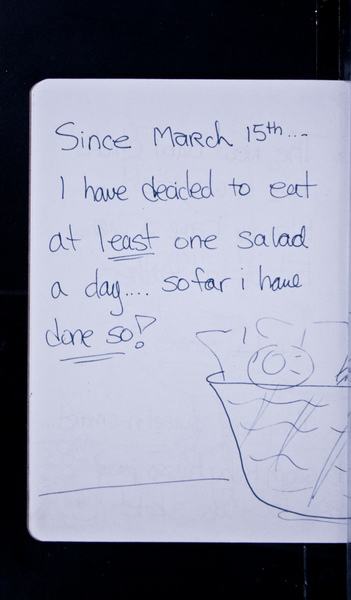 Since March 15th...
I have decided to eat
at least one salad
a day.... so far i have
done so!